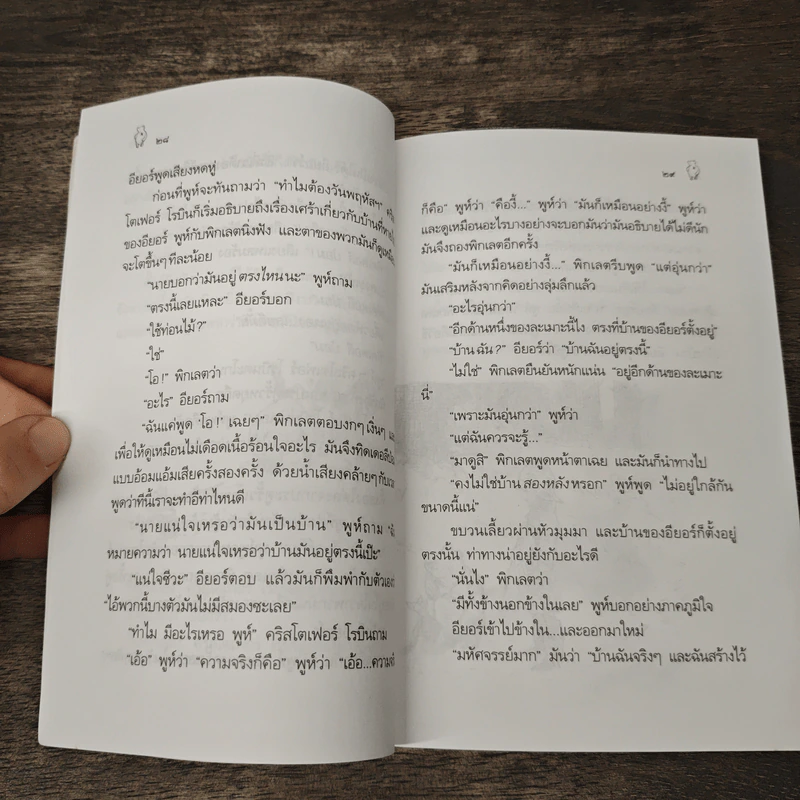 ๒๘
อียอร์พูดเสียงหดหู่
ก่อนที่พูห์จะทันถามว่า "ทำไมต้องวันพฤหัสฯ"
โตเฟอร์ โรบินก็เริ่มอธิบายถึงเรื่องเศร้าเกี่ยวกับบ้านที่
ของอียอร์ พูห์กับพิกเลตนิ่งฟัง และตาของพวกมันก็ดู
จะโตขึ้นๆ ทีละน้อย
"นายบอกว่ามันอยู่ ตรงไหน นะ" พูห์ถาม
"ตรงนี้เลยแหละ" อียอร์บอก
"ใช้ท่อนไม้?"
"ใช่"
"โอ!" พิกเลตว่า
"อะไร" อียอร์ถาม
"ฉันแค่พูด 'โอ!' เฉยๆ" พิกเลตตอบงกๆ เงิ่นๆ
เพื่อให้ดูเหมือนไม่เดือดเนื้อร้อนใจอะไร มันจึงทิดเดอลี
แบบอ้อมแอ้มเสียครั้งสองครั้ง ด้วยน้ำเสียงคล้ายๆ กับ
พูดว่าทีนี้เราจะทำอีท่าไหนดี
"นายแน่ใจเหรอว่ามันเป็นบ้าน" พูห์ถาม
หมายความว่า นายแน่ใจเหรอว่าบ้านมันอยู่ตรงนี้เป๊ะ"
"แน่ใจซีวะ" อียอร์ตอบ แล้วมันก็พึมพำกับตัวเอง
"ไอ้พวกนี้บางตัวมันไม่มีสมองซะเลย"
"ทำไม มีอะไรเหรอ พูห์" คริสโตเฟอร์ โรบินถาม
"เอ้อ" พูห์ว่า "ความจริงก็คือ" พูห์ว่า "เอ้อ...ความจ
๒๙
ก็คือ" พูห์ว่า "คืองี้..." พูห์ว่า "มันก็เหมือนอย่างงี้" พูห์ว่า
และดูเหมือนอะไรบางอย่างจะบอกมันว่ามันอธิบายได้ไม่ดีนัก
มันจึงถองพิกเลตอีกครั้ง
"มันก็เหมือนอย่างงี้..." พิกเลตรีบพูด "แต่อุ่นกว่า"
มันเสริมหลังจากคิดอย่างลุ่มลึกแล้ว
"อะไรอุ่นกว่า"
"อีกด้านหนึ่งของละเมาะนี้ไง ตรงที่บ้านของอียอร์ตั้งอยู่"
"บ้าน ฉัน?" อียอร์ว่า "บ้านฉันอยู่ตรงนี้"
"ไม่ใช่" พิกเลตยืนยันหนักแน่น "อยู่อีกด้านของละเมาะ
นี่"
"เพราะมันอุ่นกว่า" พูห์ว่า
"แต่ฉันควรจะรู้..."
"มาดูสิ" พิกเลตพูดหน้าตาเฉย และมันก็นำทางไป
"คงไม่ใช่บ้าน สองหลัง หรอก" พูห์พูด "ไม่อยู่ใกล้กัน
ขนาดนี้แน่"
ขบวนเลี้ยวผ่านหัวมุมมา และบ้านของอียอร์ก็ตั้งอยู่
ตรงนั้น ท่าทางน่าอยู่ยังกับอะไรดี
"นั่นไง" พิกเลตว่า
"มีทั้งข้างนอกข้างในเลย" พูห์บอกอย่างภาคภูมิใจ
อียอร์เข้าไปข้างใน...และออกมาใหม่
"มหัศจรรย์มาก" มันว่า "บ้านฉันจริงๆ และฉันสร้างไว้